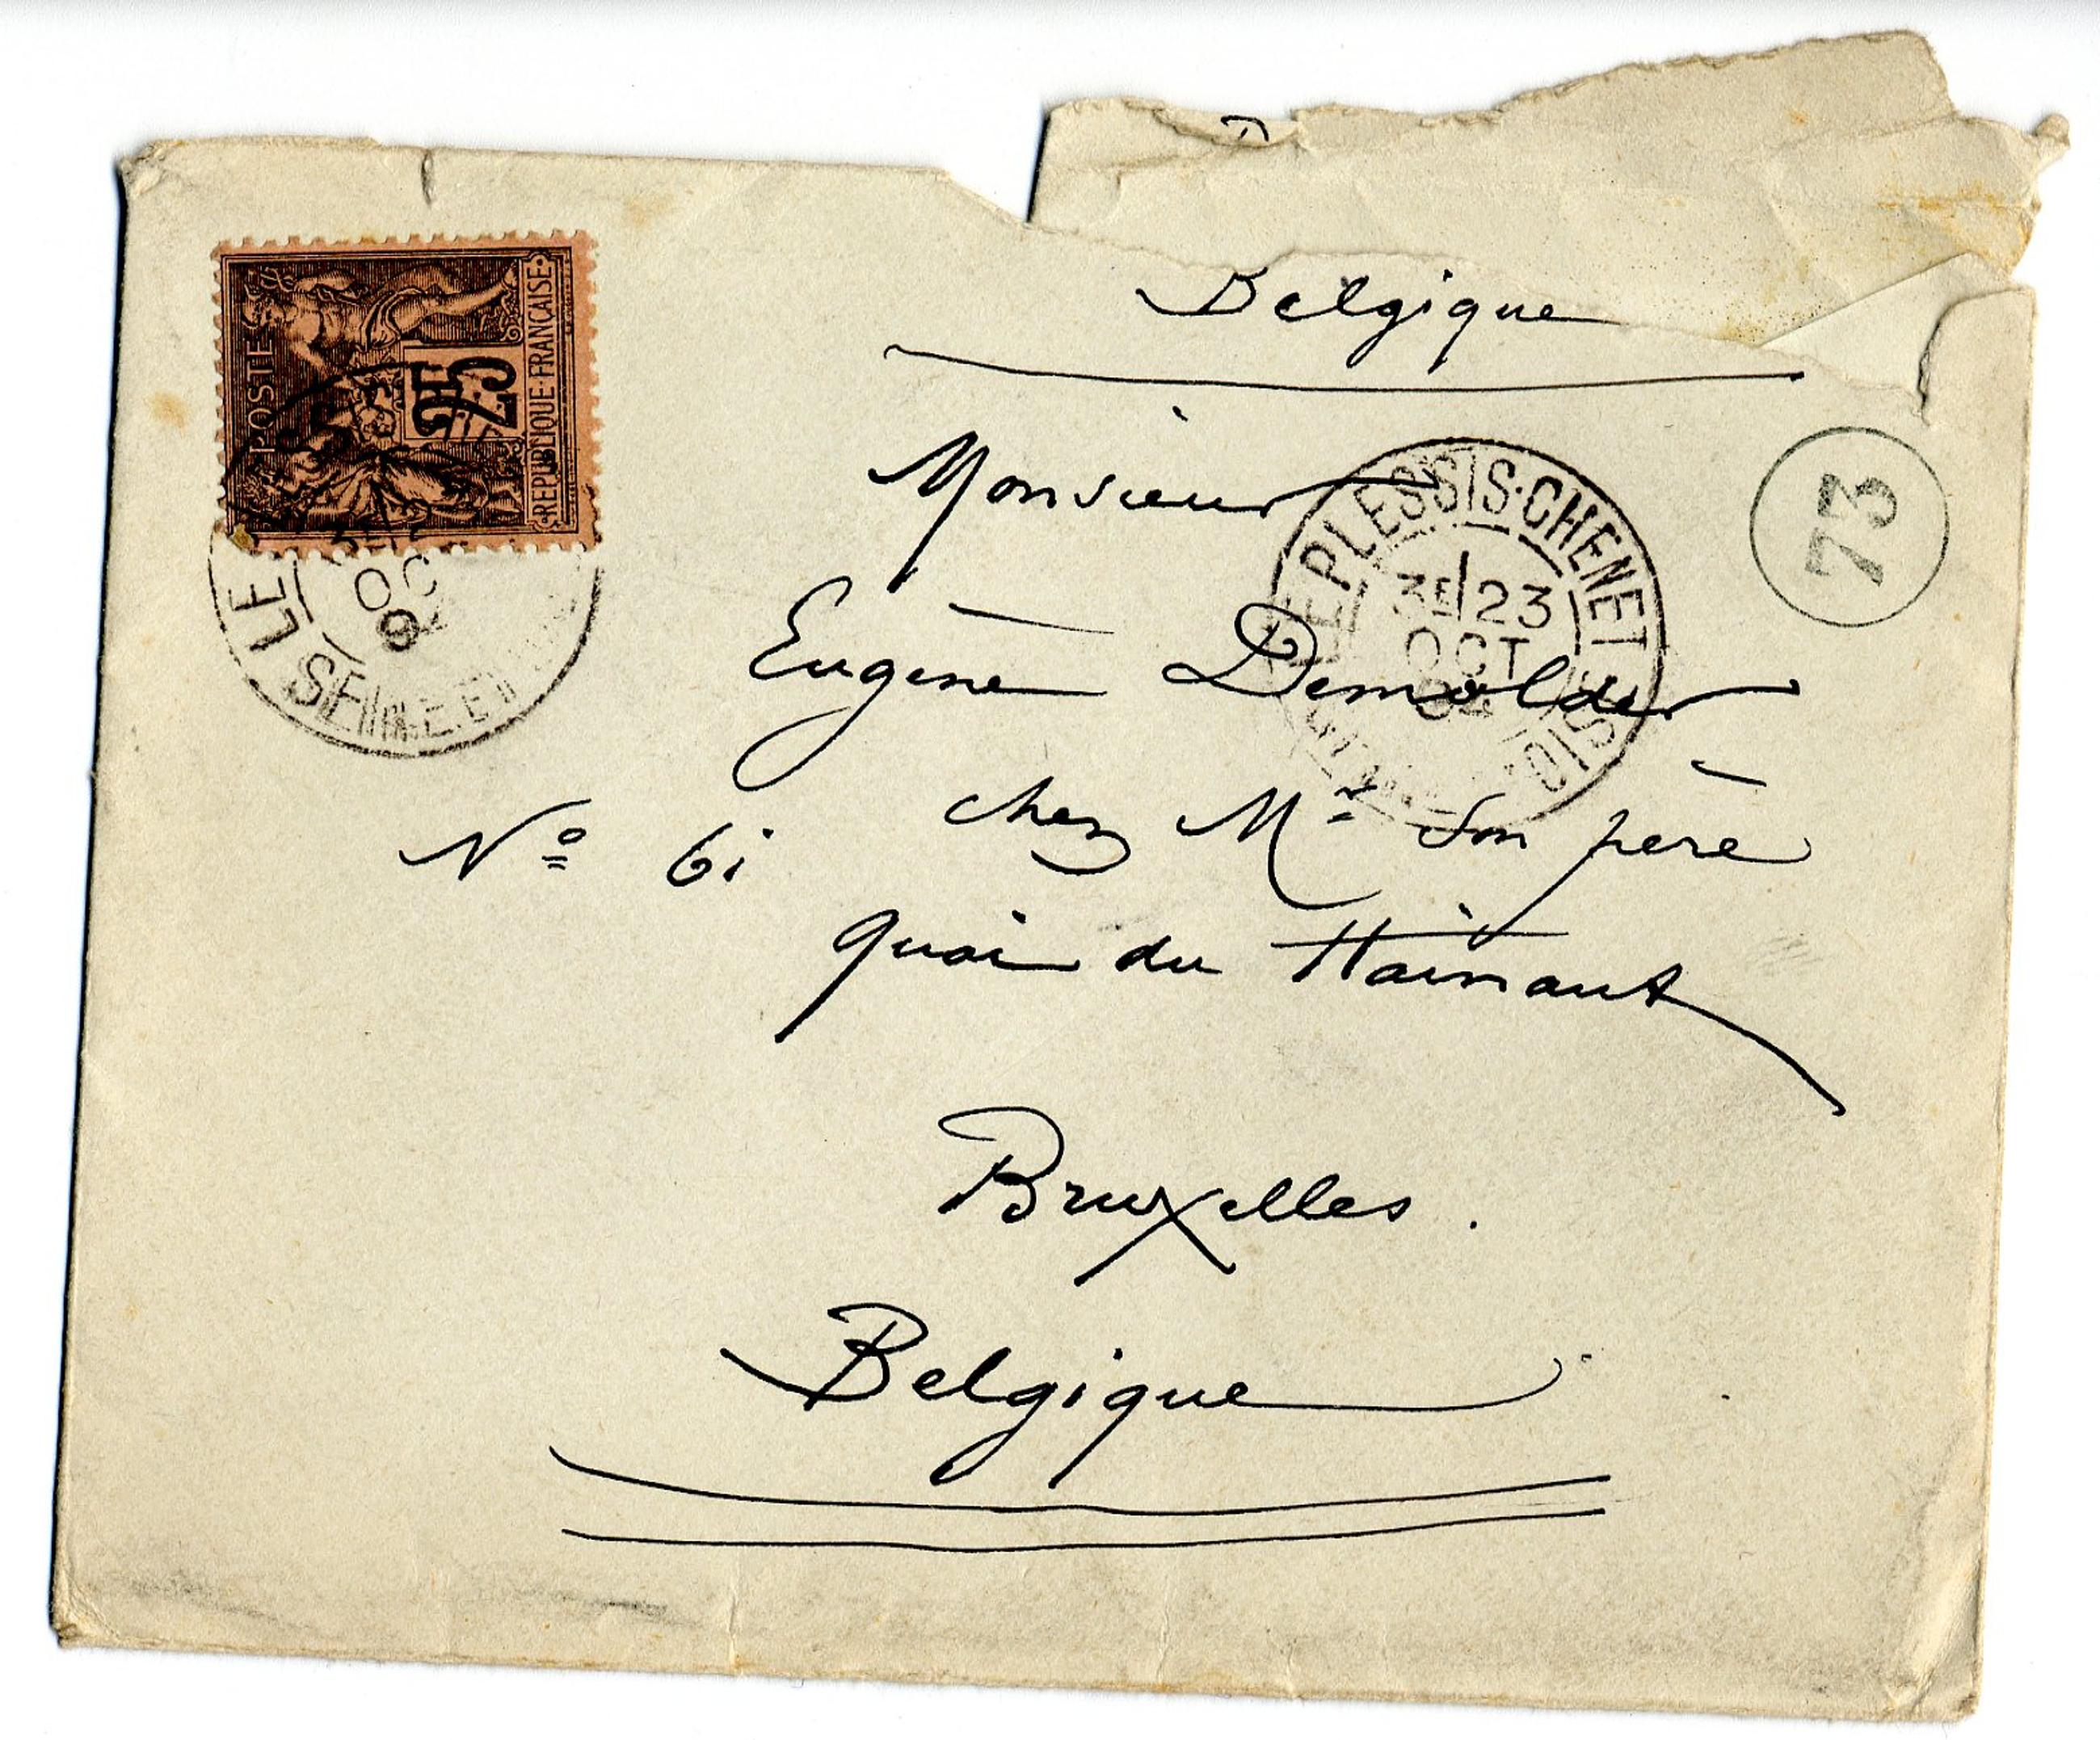 Belgique
POSTES
25
REPUBLIQUE FRANÇAISE
LE
3E
OC
9
SEINE-ET
Monsieur
LE PLESSIS-CHENET
3E 23
OCT
OISE
73
Eugène Demolder
chez Mr Son père
No 61
quai du Hainaut
Bruxelles.
Belgique